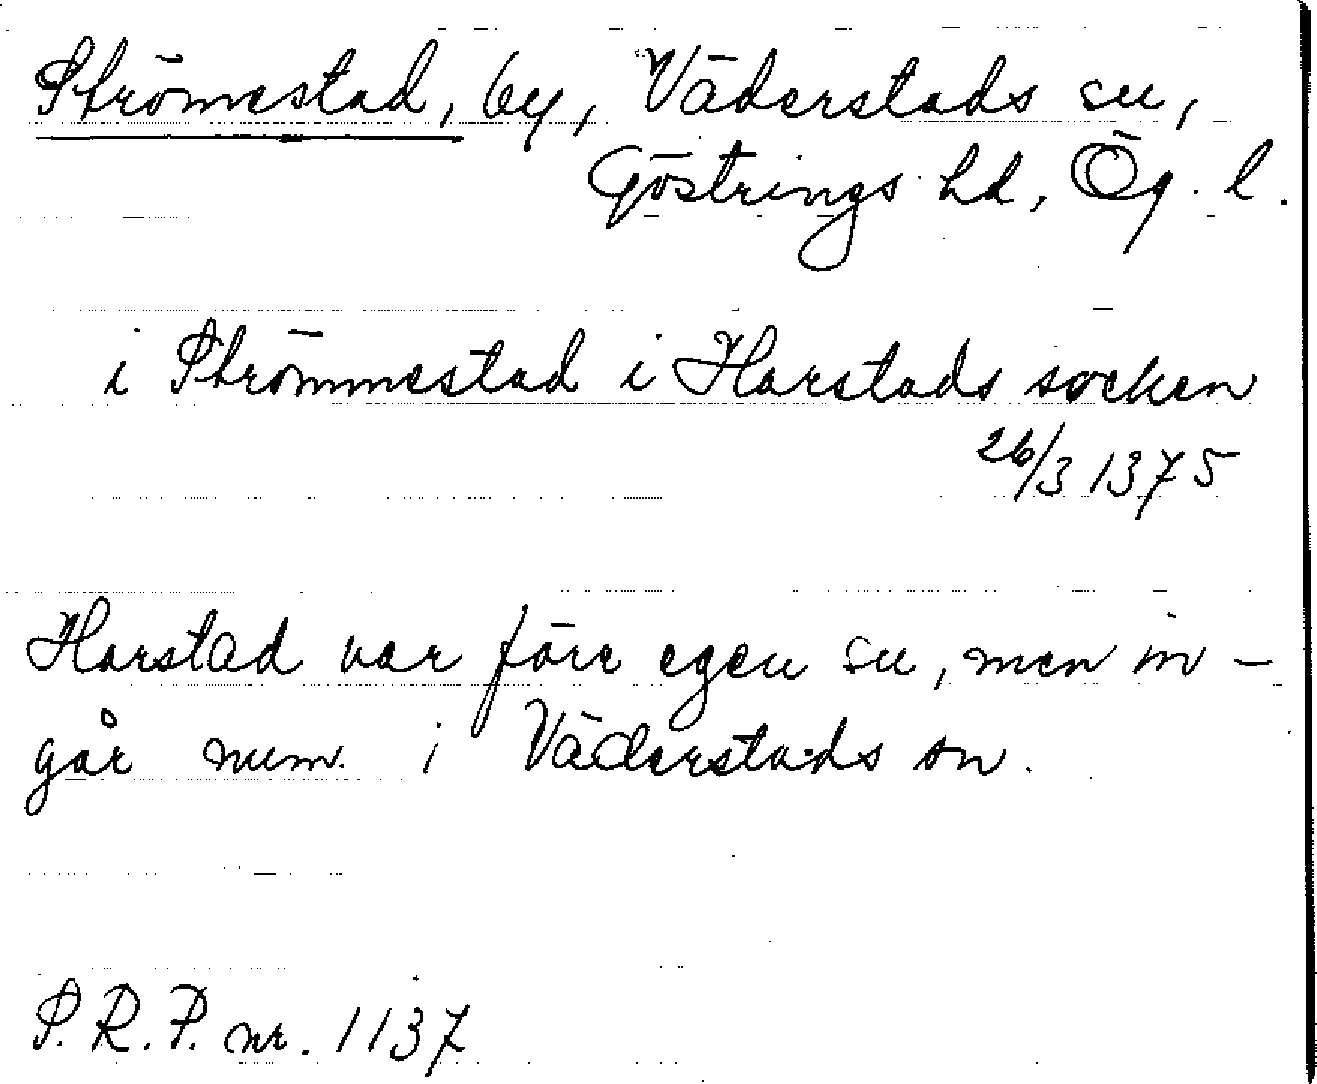 Strömestad, by, Väderstads sn,
Göstrings hd, Ög. l.
i Strömmestad i Harstads socken
26/3 1375
Harstad var förr egen sn, men in-
går num. i Väderstads sn.
S. R. P. nr. 1137